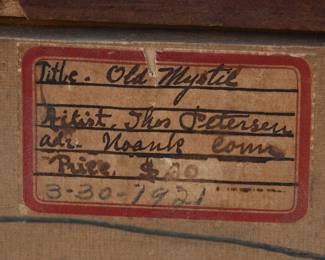 Title. Old Mystic
Artist, Thos Petersen
adr. Noank Conn
Price $20
3-30-1921